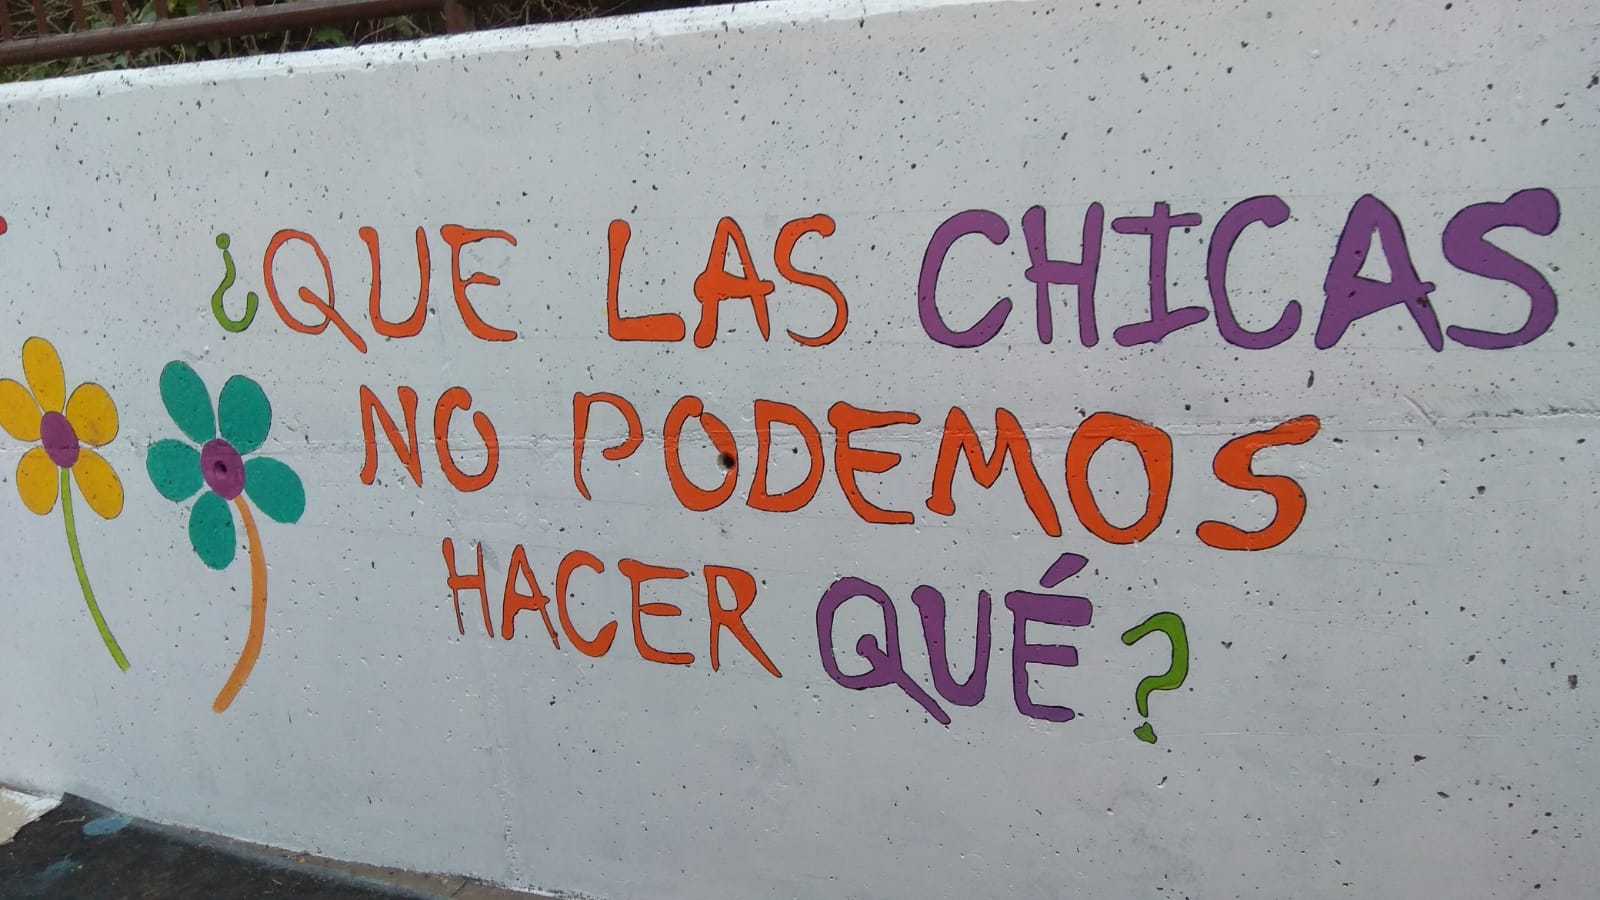 ¿QUE LAS CHICAS
NO PODEMOS
HACER QUÉ?